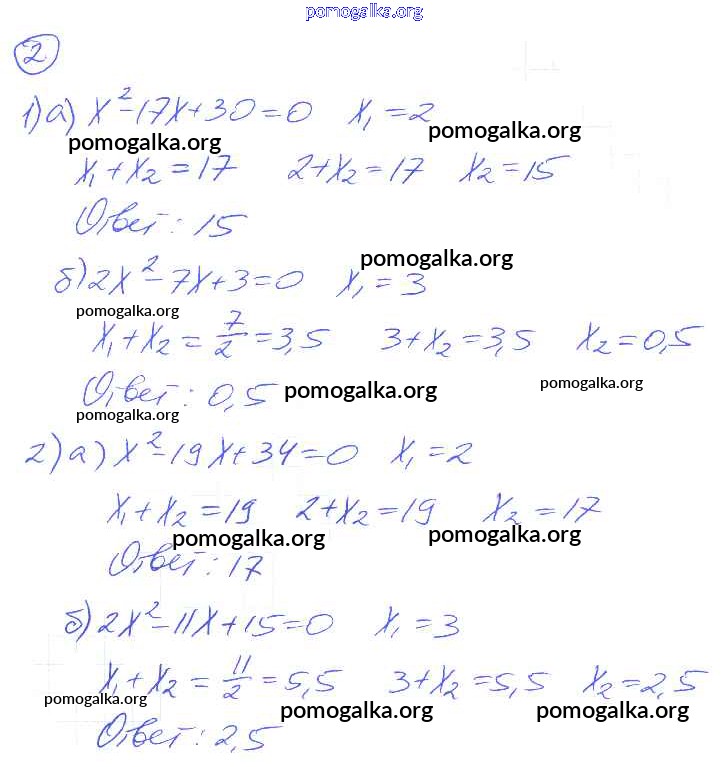 pomogalka.org
2
1) а) x² - 17x + 30 = 0 x₁ = 2
pomogalka.org pomogalka.org
x₁ + x₂ = 17 2 + x₂ = 17 x₂ = 15
Ответ: 15
pomogalka.org
б) 2x² - 7x + 3 = 0 x₁ = 3
pomogalka.org
x₁ + x₂ = 7/2 = 3,5 3 + x₂ = 3,5 x₂ = 0,5
pomogalka.org pomogalka.org
Ответ: 0,5
pomogalka.org
2) а) x² - 19x + 34 = 0 x₁ = 2
x₁ + x₂ = 19 2 + x₂ = 19 x₂ = 17
pomogalka.org pomogalka.org
Ответ: 17
б) 2x² - 11x + 15 = 0 x₁ = 3
x₁ + x₂ = 11/2 = 5,5 3 + x₂ = 5,5 x₂ = 2,5
pomogalka.org pomogalka.org pomogalka.org
Ответ: 2,5